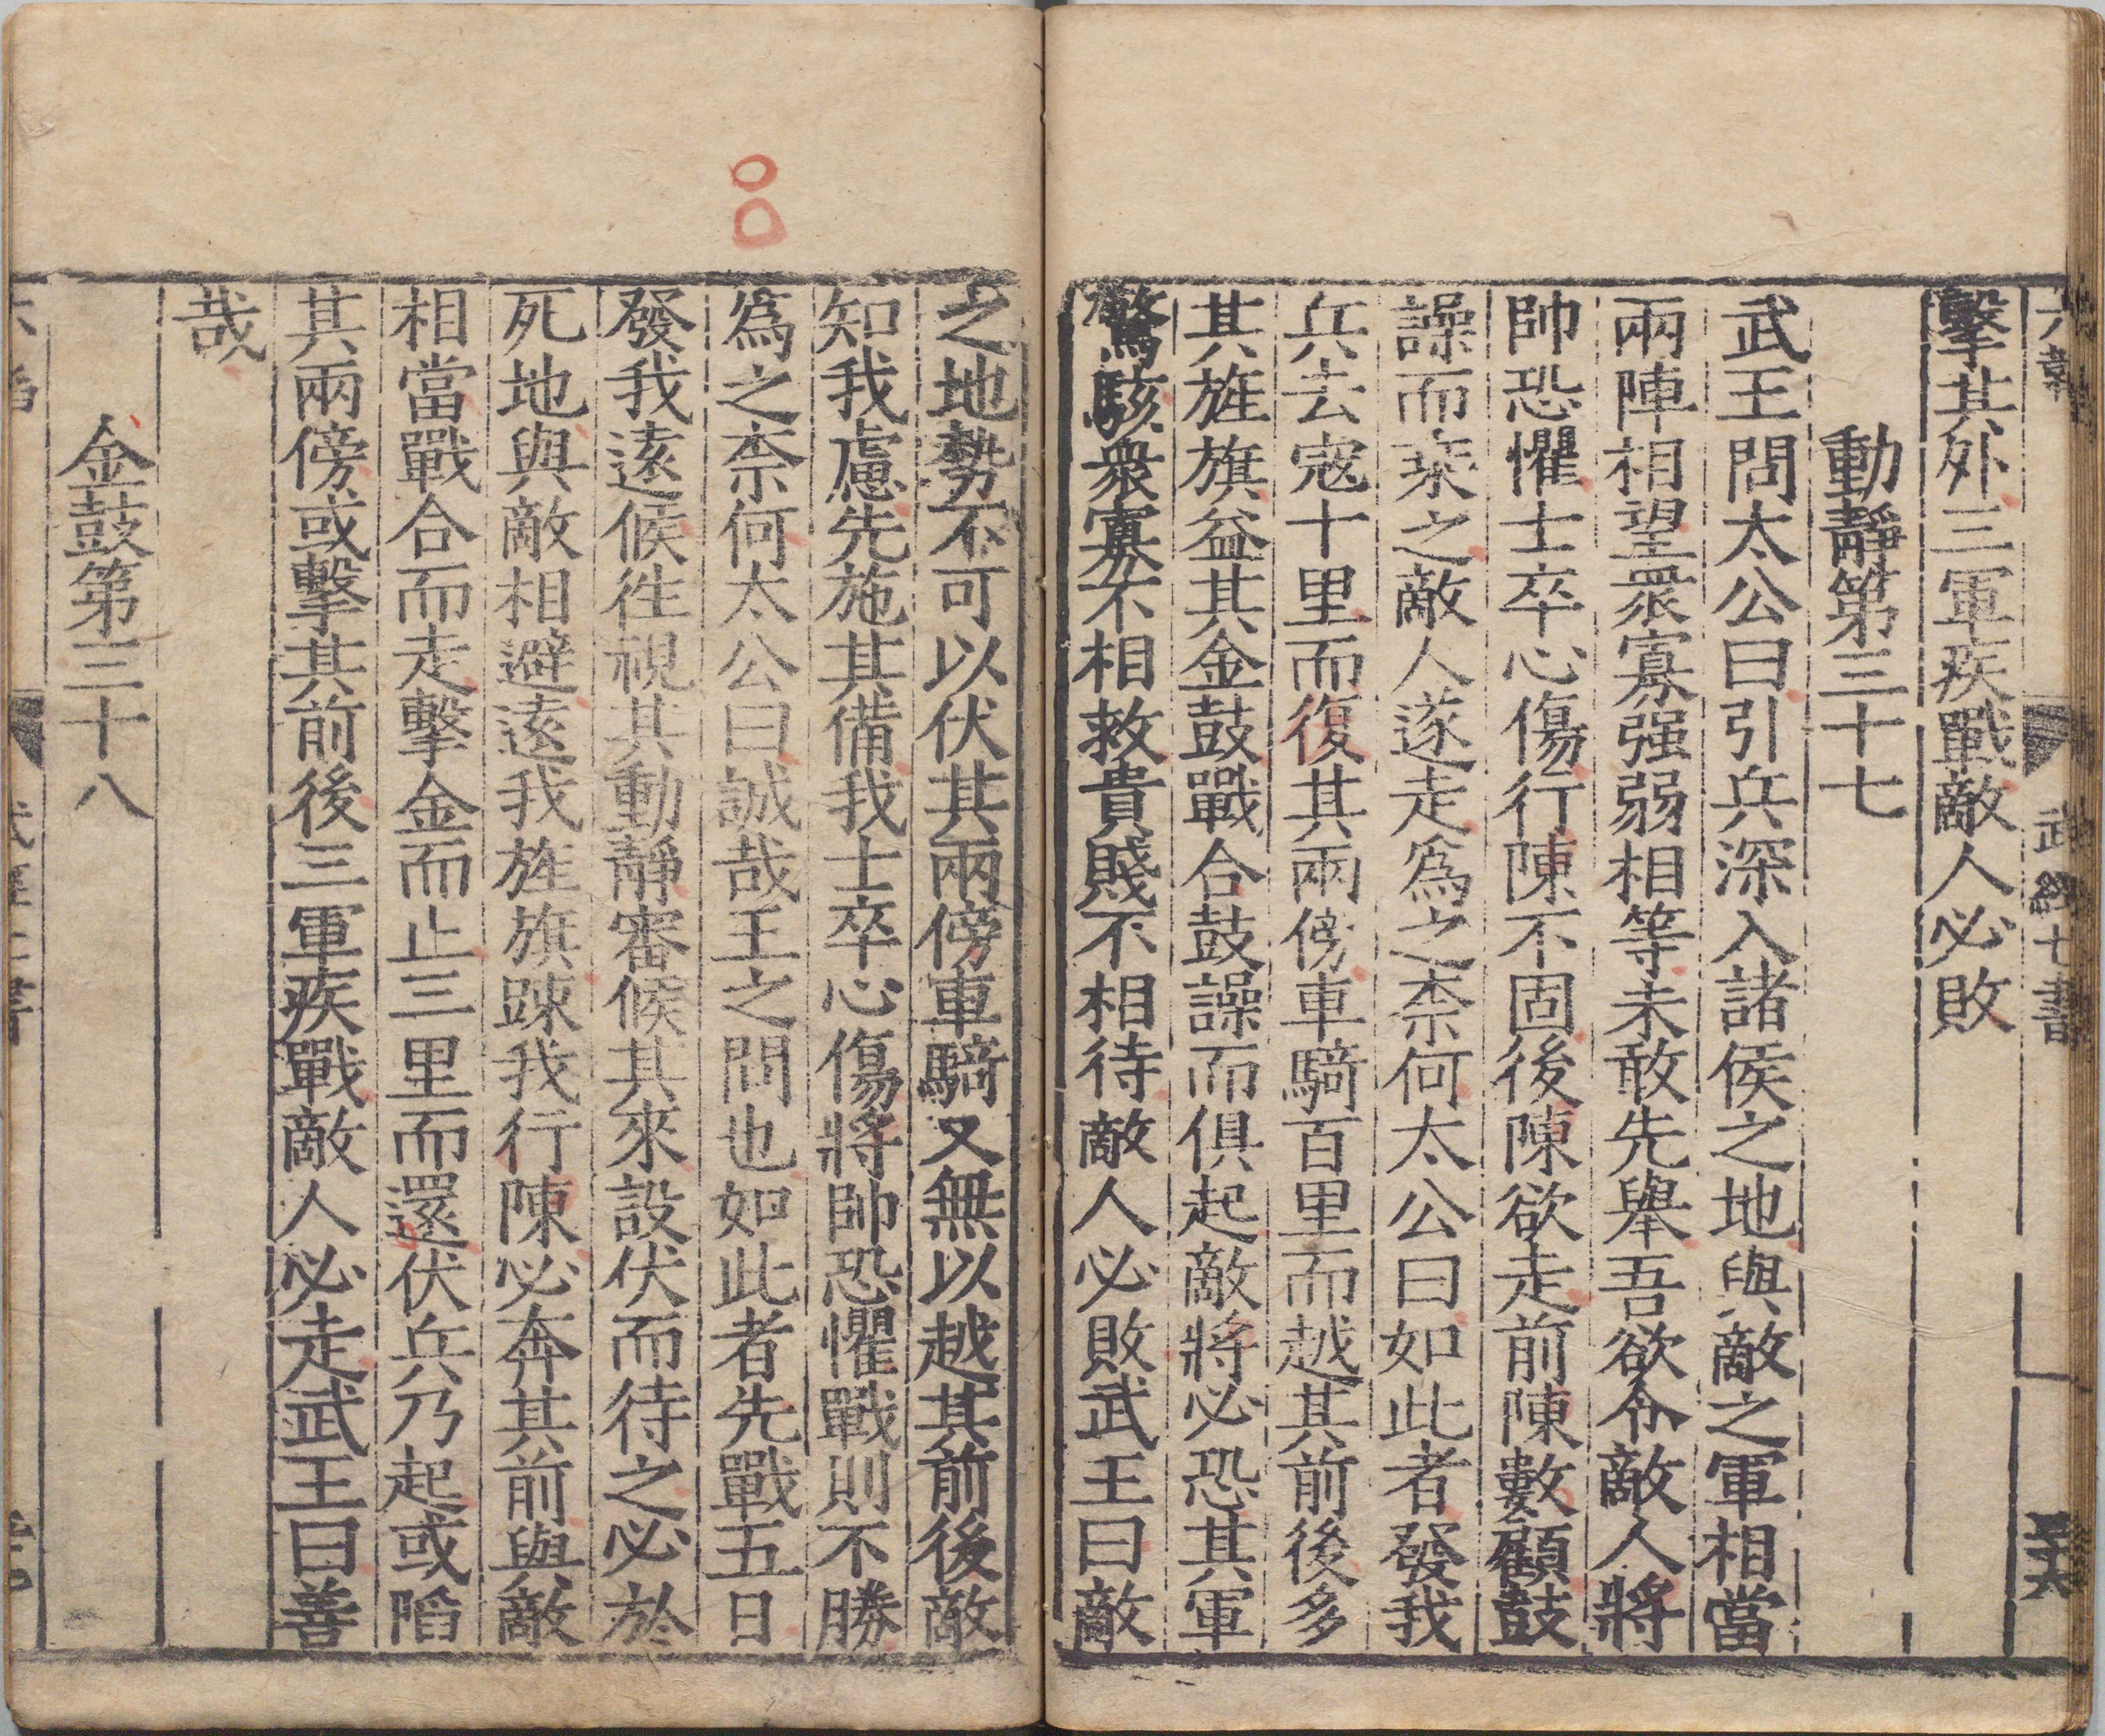 六韜
武經七書
擊其外三軍疾戰敵人必敗
動靜第三十七
武王問太公曰引兵深入諸侯之地與敵之軍相當
兩陣相望衆寡强弱相等未敢先舉吾欲令敵人將
帥恐懼士卒心傷行陳不固後陳欲走前陳數顧鼓
譟而乗之敵人遂走爲之柰何太公曰如此者發我
兵去寇十里而復其兩傍車騎百里而越其前後多
其旌旗益其金鼓戰合鼓譟而俱起敵將必恐其軍
驚駭衆寡不相救貴賤不相待敵人必敗武王曰敵
之地勢不可以伏其兩傍車騎又無以越其前後敵
知我慮先施其備我士卒心傷將帥恐懼戰則不勝
爲之柰何太公曰誠哉王之問也如此者先戰五日
發我遠候徃視其動靜審候其來設伏而待之必於
死地與敵相避遠我旌旗踈我行陳必奔其前與敵
相當戰合而走擊金而止三里而還伏兵乃起或陷
其兩傍或擊其前後三軍疾戰敵人必走武王曰善
哉
金鼓第三十八